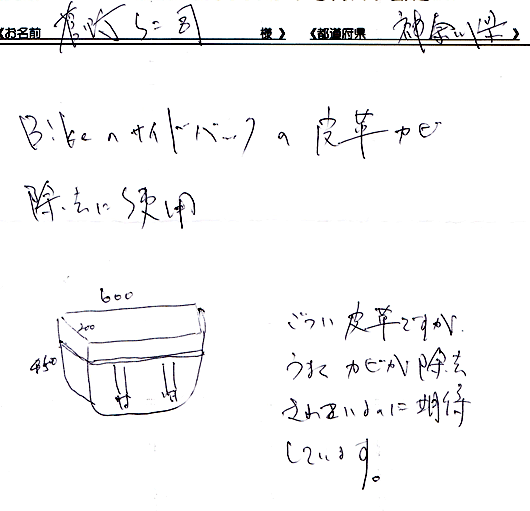 《お名前 様》 《都道府県 神奈川県》
Bikeのサイドバックの皮革カビ
除去に使用
600
200
450
ごつい皮革ですが、
うまくカビが除去
されているのに期待
しています。